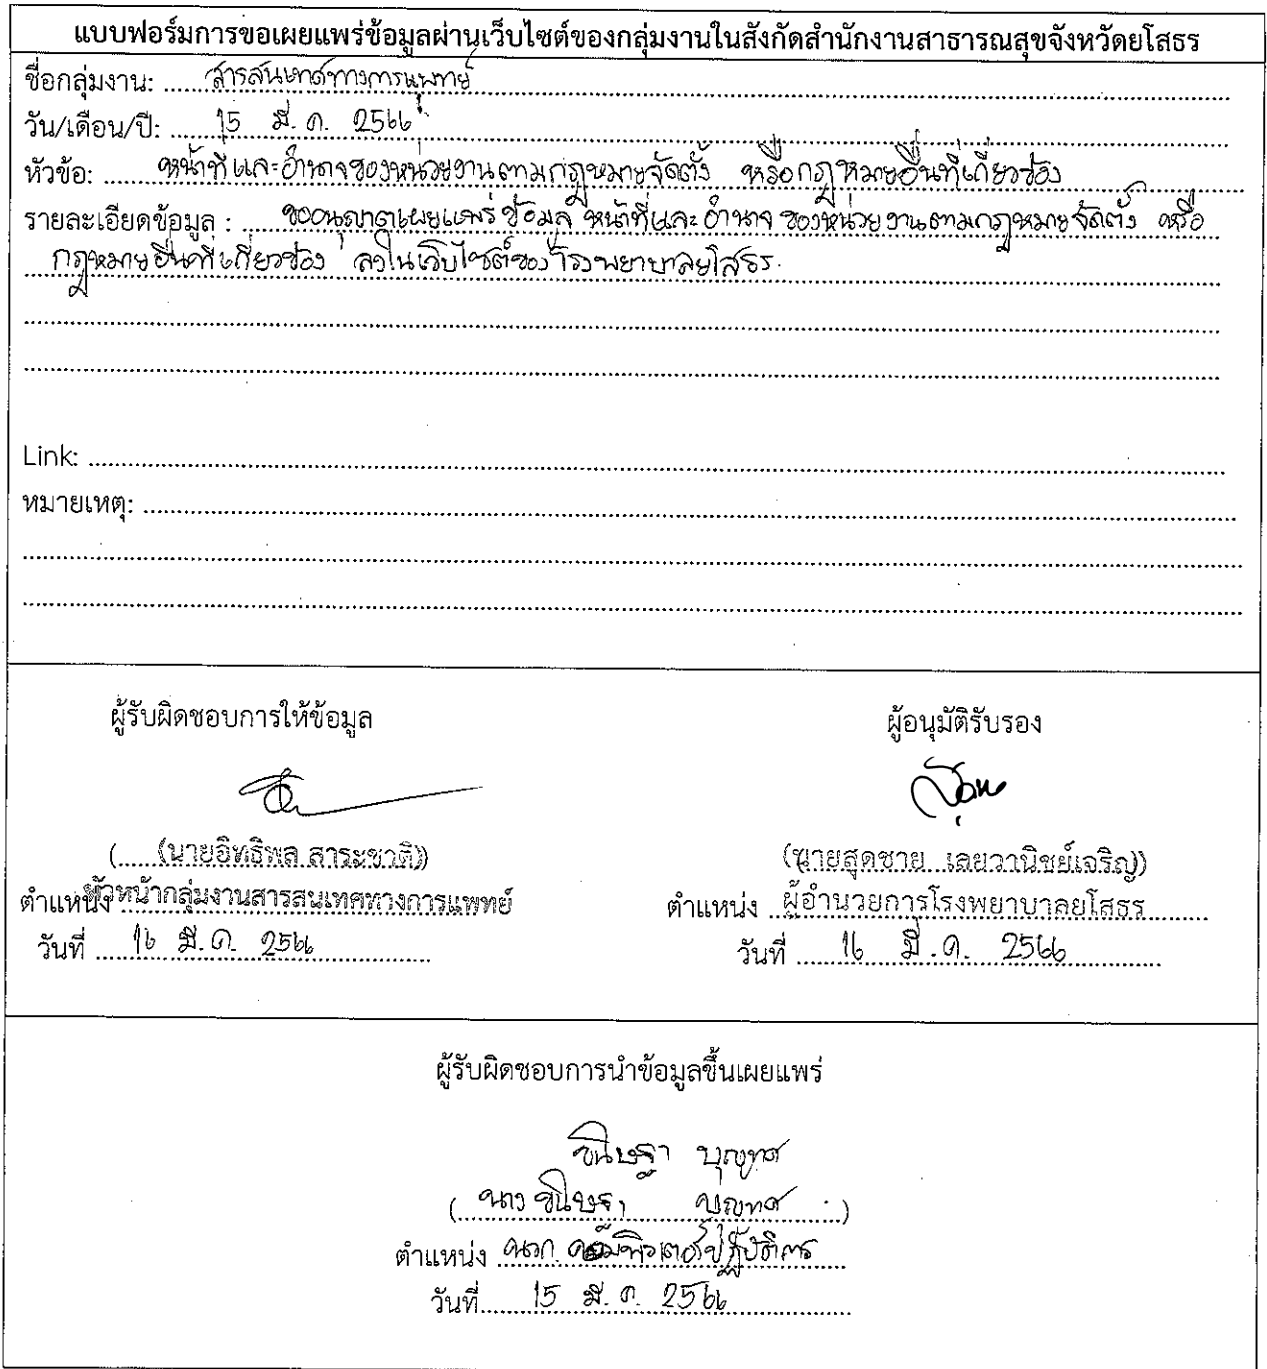 แบบฟอร์มการขอเผยแพร่ข้อมูลผ่านเว็บไซต์ของกลุ่มงานในสังกัดสำนักงานสาธารณสุขจังหวัดยโสธร
ชื่อกลุ่มงาน: สารสนเทศทางการแพทย์
วัน/เดือน/ปี: 15 มี.ค. 2566
หัวข้อ: หน้าที่และอำนาจของหน่วยงานตามกฎหมายจัดตั้ง หรือกฎหมายอื่นที่เกี่ยวข้อง
รายละเอียดข้อมูล : ขออนุญาตเผยแพร่ข้อมูล หน้าที่และอำนาจ ของหน่วยงานตามกฎหมายจัดตั้ง หรือ
กฎหมายอื่นที่เกี่ยวข้อง ลงในเว็บไซต์ของโรงพยาบาลยโสธร.
Link:
หมายเหตุ:
ผู้รับผิดชอบการให้ข้อมูล
(นายอิทธิพล สาระชาติ)
ตำแหน่ง หัวหน้ากลุ่มงานสารสนเทศทางการแพทย์
วันที่ 16 มี.ค. 2566
ผู้อนุมัติรับรอง
(นายสุดชาย เลยวานิชย์เจริญ)
ตำแหน่ง ผู้อำนวยการโรงพยาบาลยโสธร
วันที่ 16 มี.ค. 2566
ผู้รับผิดชอบการนำข้อมูลขึ้นเผยแพร่
ขนิษฐา บุญทศ
(นางขนิษฐา บุญทศ)
ตำแหน่ง นวก.คอมพิวเตอร์ปฏิบัติการ
วันที่ 15 มี.ค. 2566